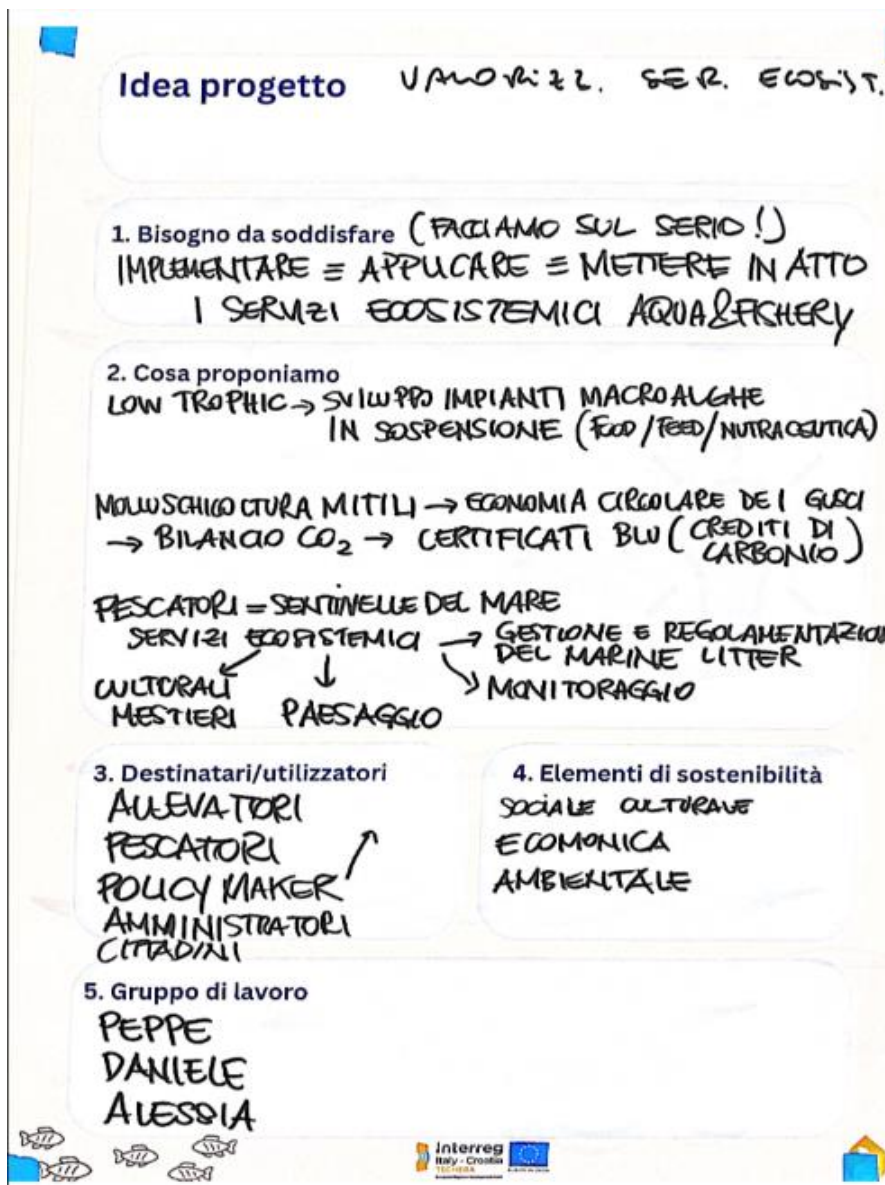 Idea progetto VALORIZZ. SER. ECOSIST.
1. Bisogno da soddisfare (FACCIAMO SUL SERIO!)
IMPLEMENTARE ≡ APPLICARE ≡ METTERE IN ATTO
I SERVIZI ECOSISTEMICI AQUA&FISHERY
2. Cosa proponiamo
LOW TROPHIC → SVILUPPO IMPIANTI MACROALGHE
IN SOSPENSIONE (FOOD/FEED/NUTRACEUTICA)
MOLLUSCHICOLTURA MITILI → ECONOMIA CIRCOLARE DEI GUSCI
→ BILANCIO CO₂ → CERTIFICATI BLU (CREDITI DI
CARBONIO)
PESCATORI = SENTINELLE DEL MARE
SERVIZI ECOSISTEMICI → GESTIONE E REGOLAMENTAZION
DEL MARINE LITTER
CULTURALI ↓ MONITORAGGIO
MESTIERI PAESAGGIO
3. Destinatari/utilizzatori
ALLEVATORI
PESCATORI
POLICY MAKER
AMMINISTRATORI
CITTADINI
4. Elementi di sostenibilità
SOCIALE CULTURALE
ECOMONICA
AMBIENTALE
5. Gruppo di lavoro
PEPPE
DANIELE
ALESSIA
Interreg
Italy - Croatia
TECHERA